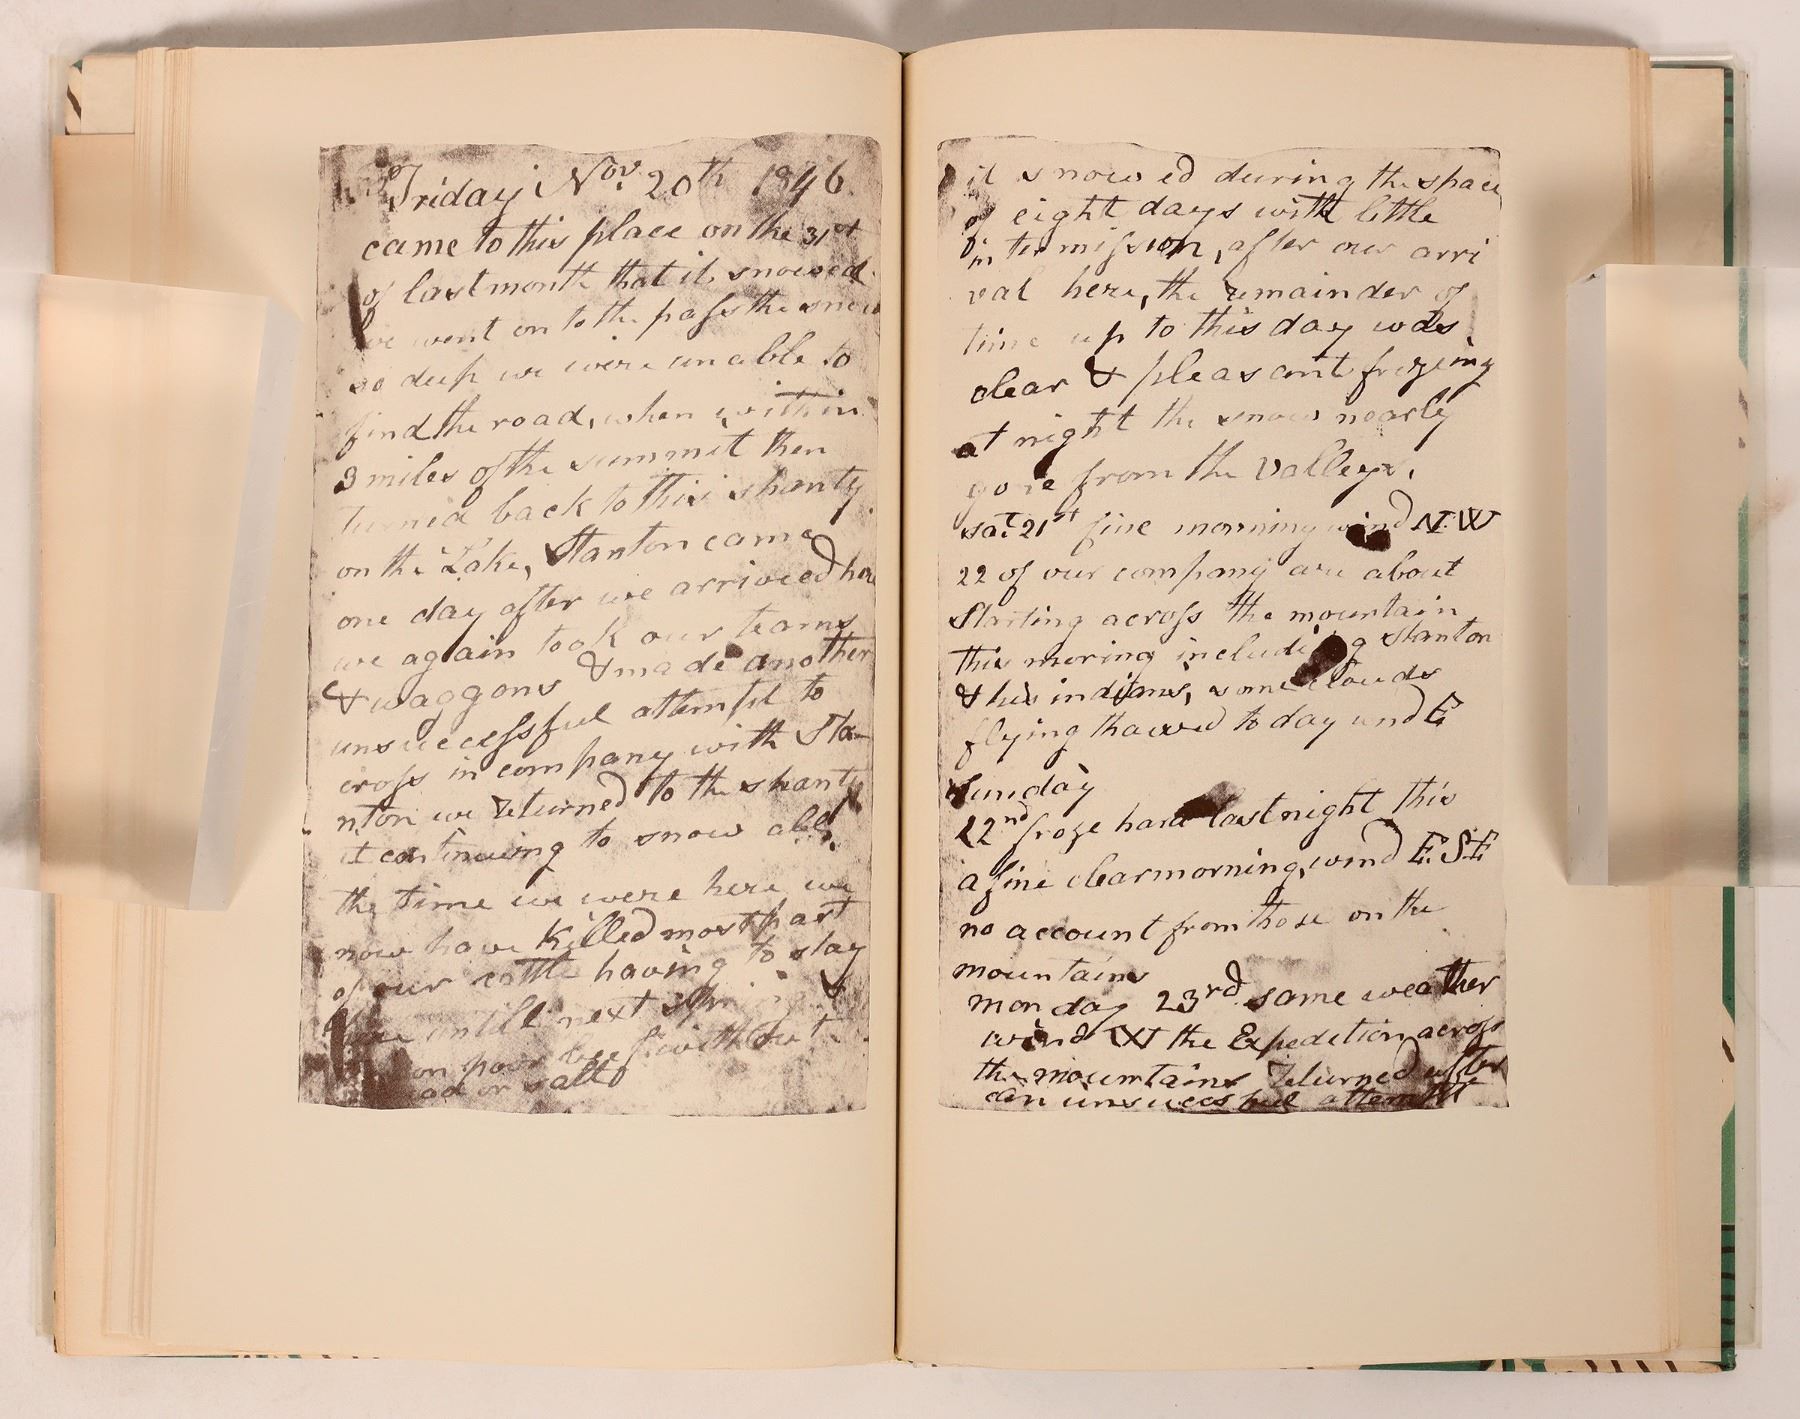 Friday Nov. 20th 1846
came to this place on the 31st
of last month that it snowed
we went on to the pass the snow
so deep we were unable to
find the road, when within
3 miles of the summit then
turned back to this shanty
on the Lake, Stanton came
one day after we arrived here
we again took our teams
& waggons & made another
unsuccessful attempt to
cross in company with Sta-
nton we returned to the shanty
it continueing to snow all
the time we were here we
now have Killed most part
of our cattle having to stay
here untill next spring &
on poor beef without
ad or salt
it snowed during the space
of eight days with little
intermission, after our arri
val here, the remainder of
time up to this day was
clear & pleasant frezeing
at night the snow nearly
gone from the valleys,
sat 21st fine morning wind N.W
22 of our company are about
Starting across the mountain
this moring including Stanton
& his indians, some clouds
flying thawed to day wnd E
Sunday
22nd froze hard last night this
a fine clear morning, wind E.S.E
no account from those on the
mountains
monday 23rd same weather
wind W the Expedition across
the mountains returned after
an unsuccesful attempt